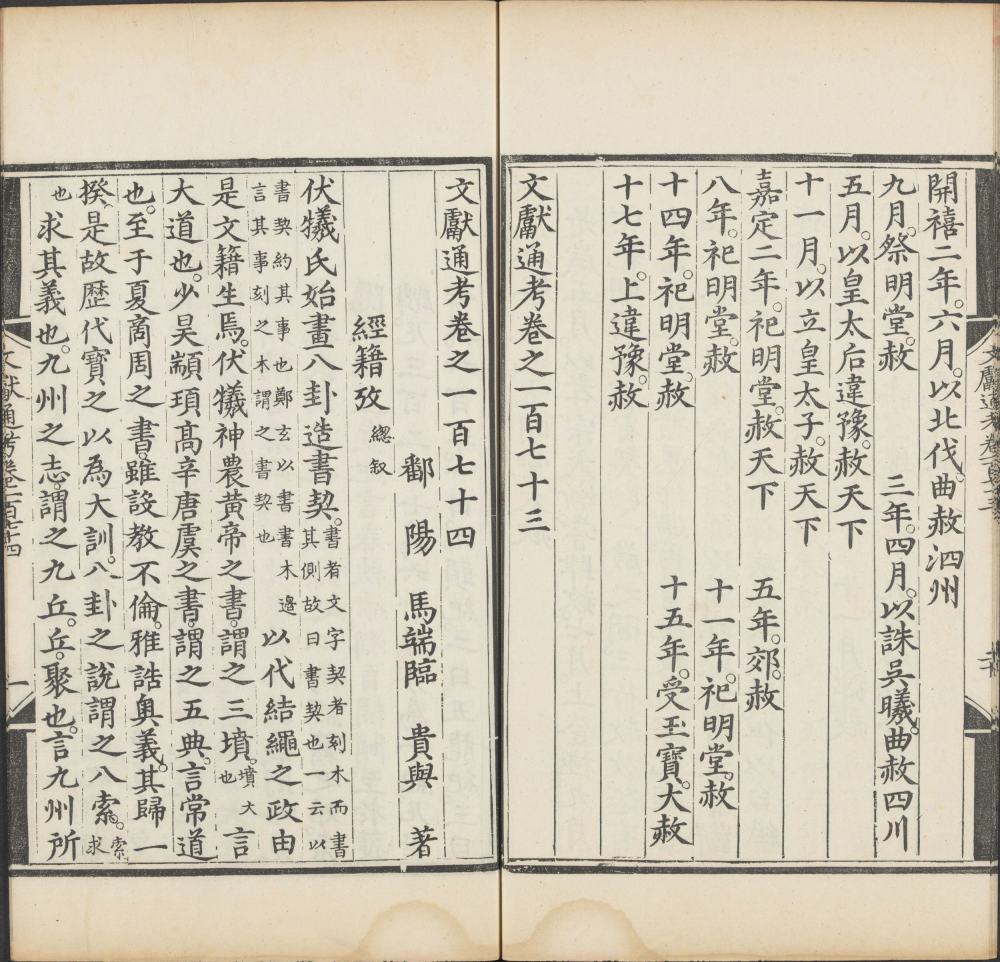 開禧二年。六月。以北伐。曲赦泗州
九月。祭明堂。赦　三年。四月。以誅吳曦。曲赦四川
五月。以皇太后違豫。赦天下
十一月。以立皇太子。赦天下
嘉定二年。祀明堂。赦天下　五年。郊。赦
八年。祀明堂。赦　十一年。祀明堂。赦
十四年。祀明堂。赦　十五年。受玉寶。大赦
十七年。上違豫。赦
文獻通考卷之一百七十三
文獻通考卷之一百七十四
鄱陽　馬端臨　貴與　著
經籍攷　緫叙
伏犧氏始畫八卦造書契。書者文字契者刻木而書其側故曰書契也一云以
書契約其事也鄭玄以書書木邊言其事刻之木謂之書契也以代結繩之政由
是文籍生焉。伏犧神農黃帝之書。謂之三墳。墳大也言
大道也。少昊顓頊高辛唐虞之書。謂之五典。言常道
也。至于夏商周之書。雖設教不倫。雅誥奥義。其歸一
揆。是故歴代寶之以為大訓。八卦之說謂之八索。索求
也求其義也。九州之志。謂之九丘。丘。聚也。言九州所
文獻通考卷一百七十四
一